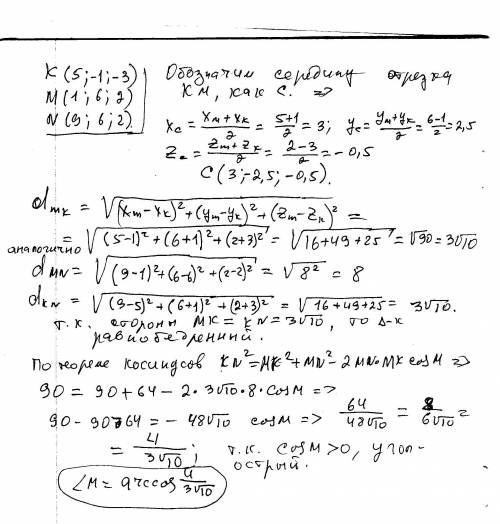 K(5;-1;-3) Обозначим середину отрезка
M(1;6;2) KM, как C. =>
N(9;6;2). x_c = (x_m+x_k)/2 = (5+1)/2 = 3; y_c = (y_m+y_k)/2 = (6-1)/2 = 2,5
z_c = (z_m+z_k)/2 = (2-3)/2 = -0,5
C(3;-2,5;-0,5).
d_mk = √((x_m-x_k)²+(y_m-y_k)²+(z_m-z_k)²) =
= √((5-1)²+(6+1)²+(2+3)²) = √(16+49+25) = √90 = 3√10
аналогично
d_MN = √((9-1)²+(6-6)²+(2-2)²) = √8² = 8
d_KN = √((9-5)²+(6+1)²+(2+3)²) = √(16+49+25) = 3√10.
т.к. стороны MK = KN = 3√10, то Δ-к
равнобедренный.
По теореме косинусов KN²=MK²+MN²-2MN·MK cosM =>
90 = 90+64-2·3√10·8·cosM =>
90-90-64 = -48√10 cosM => 64/(48√10) = 8/(6√10) =
= 4/(3√10); т.к. cosM>0, угол-
острый.
∠M = arccos 4/(3√10)